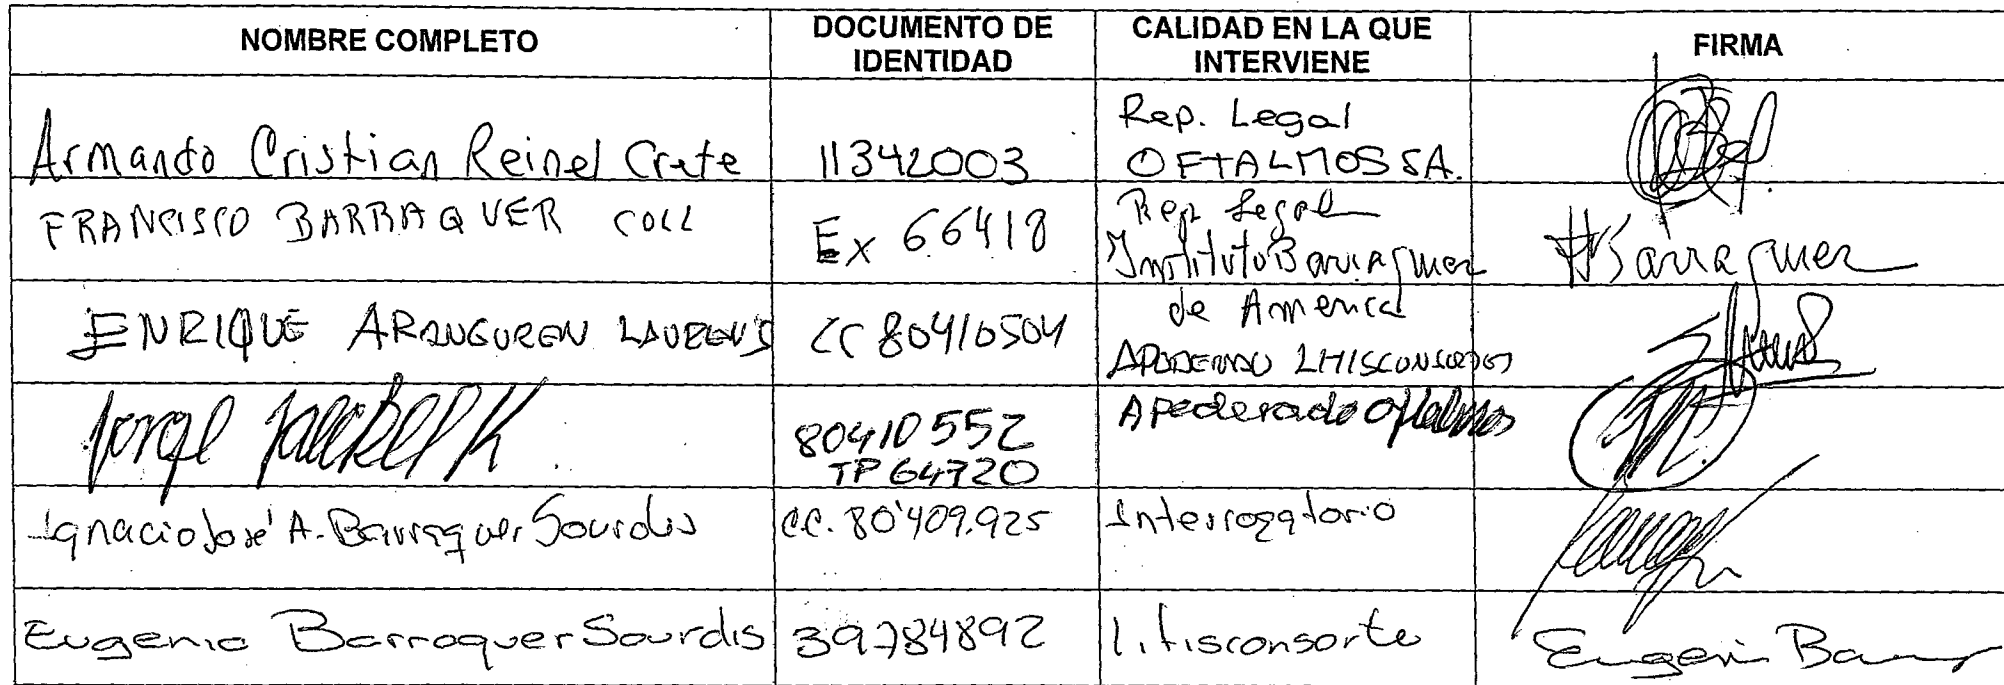 NOMBRE COMPLETO
DOCUMENTO DE IDENTIDAD
CALIDAD EN LA QUE INTERVIENE
FIRMA
Armando Cristian Reinel
11342003
Rep. Legal
OFTALMOS SA.
FRANCISCO BARRAQUER COLL
Ex 66418
Rep Legal
Instituto Barraquer
de America
Barraquer
ENRIQUE ARANGUREN LAURENS
CC 80410504
APODERADO
Jorge Jaeckel K
80410552
TP 64720
Apoderado Oftalmos
Ignacio José A. Barraquer Sourdis
C.C. 80'409.925
Interrogatorio
Eugenia Barraquer Sourdis
39784892
litisconsorte